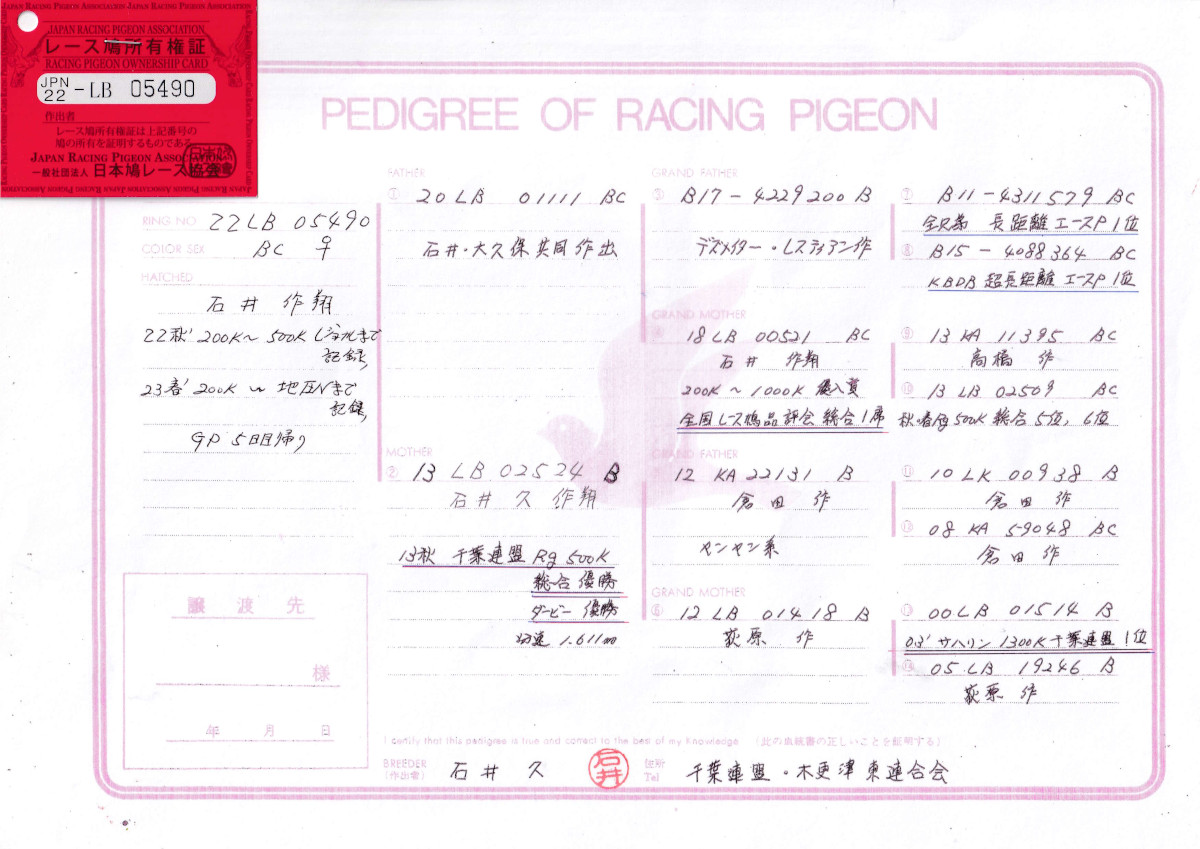 JAPAN RACING PIGEON ASSOCIATION
レース鳩所有権証
RACING PIGEON OWNERSHIP CARD
JPN
22 -LB 05490
作出者
レース鳩所有権証は上記番号の
鳩の所有を証明するものである
JAPAN RACING PIGEON ASSOCIATION
一般社団法人 日本鳩レース協会
PEDIGREE OF RACING PIGEON
RING NO 22LB 05490
COLOR SEX BC ♀
HATCHED
石井 作翔
22秋' 200K〜500K
記録
23春' 200K 〜 地区Nまで
記録
GP 5日目帰り
譲渡先
様
年 月 日
FATHER
① 20 LB 01111 BC
石井・大久保共同作出
MOTHER
② 13 LB 02524 B
石井 久 作翔
13秋 千葉連盟 Rg 500K
総合 優勝
ダービー 優勝
分速 1.611m
GRAND FATHER
③ B17-4229200 B
デズメイター・レスティアン作
GRAND MOTHER
④ 18 LB 00521 BC
石井 作翔
200K 〜 1000K 優入賞
全国レース鳩品評会 総合1席
GRAND FATHER
⑤ 12 KA 22131 B
倉田 作
ヤンヤン系
GRAND MOTHER
⑥ 12 LB 01418 B
荻原 作
⑦ B11-4311579 BC
全兄弟 長距離エースP1位
⑧ B15-4088364 BC
KBDB 超長距離エースP1位
⑨ 13 KA 11395 BC
高橋 作
⑩ 13 LB 02509 BC
秋・春Rg 500K 総合5位, 6位
⑪ 10 LK 00938 B
倉田 作
⑫ 08 KA 59048 BC
倉田 作
⑬ 00LB 01514 B
03' サハリン 1300K千葉連盟1位
⑭ 05 LB 19246 B
荻原 作
I certify that this pedigree is true and correct to the best of my knowledge (此の血統書の正しいことを証明する)
BREEDER
(作出者) 石井 久 石井 住所
Tel 千葉連盟・木更津東連合会